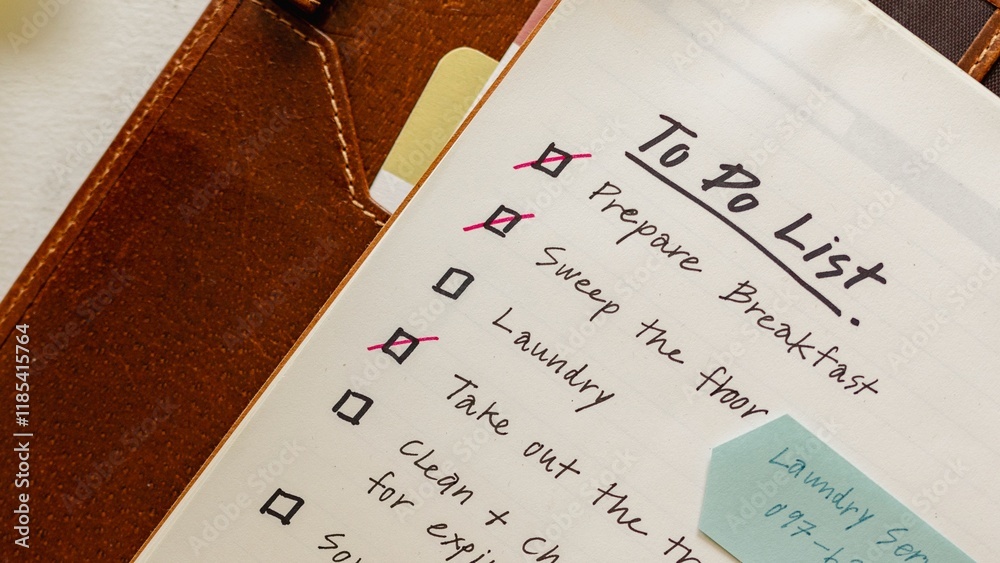 To Do List.
Prepare Breakfast
Sweep the floor
Laundry
Take out the
Clean +
for
Laundry
097-
Adobe Stock | #1185415764